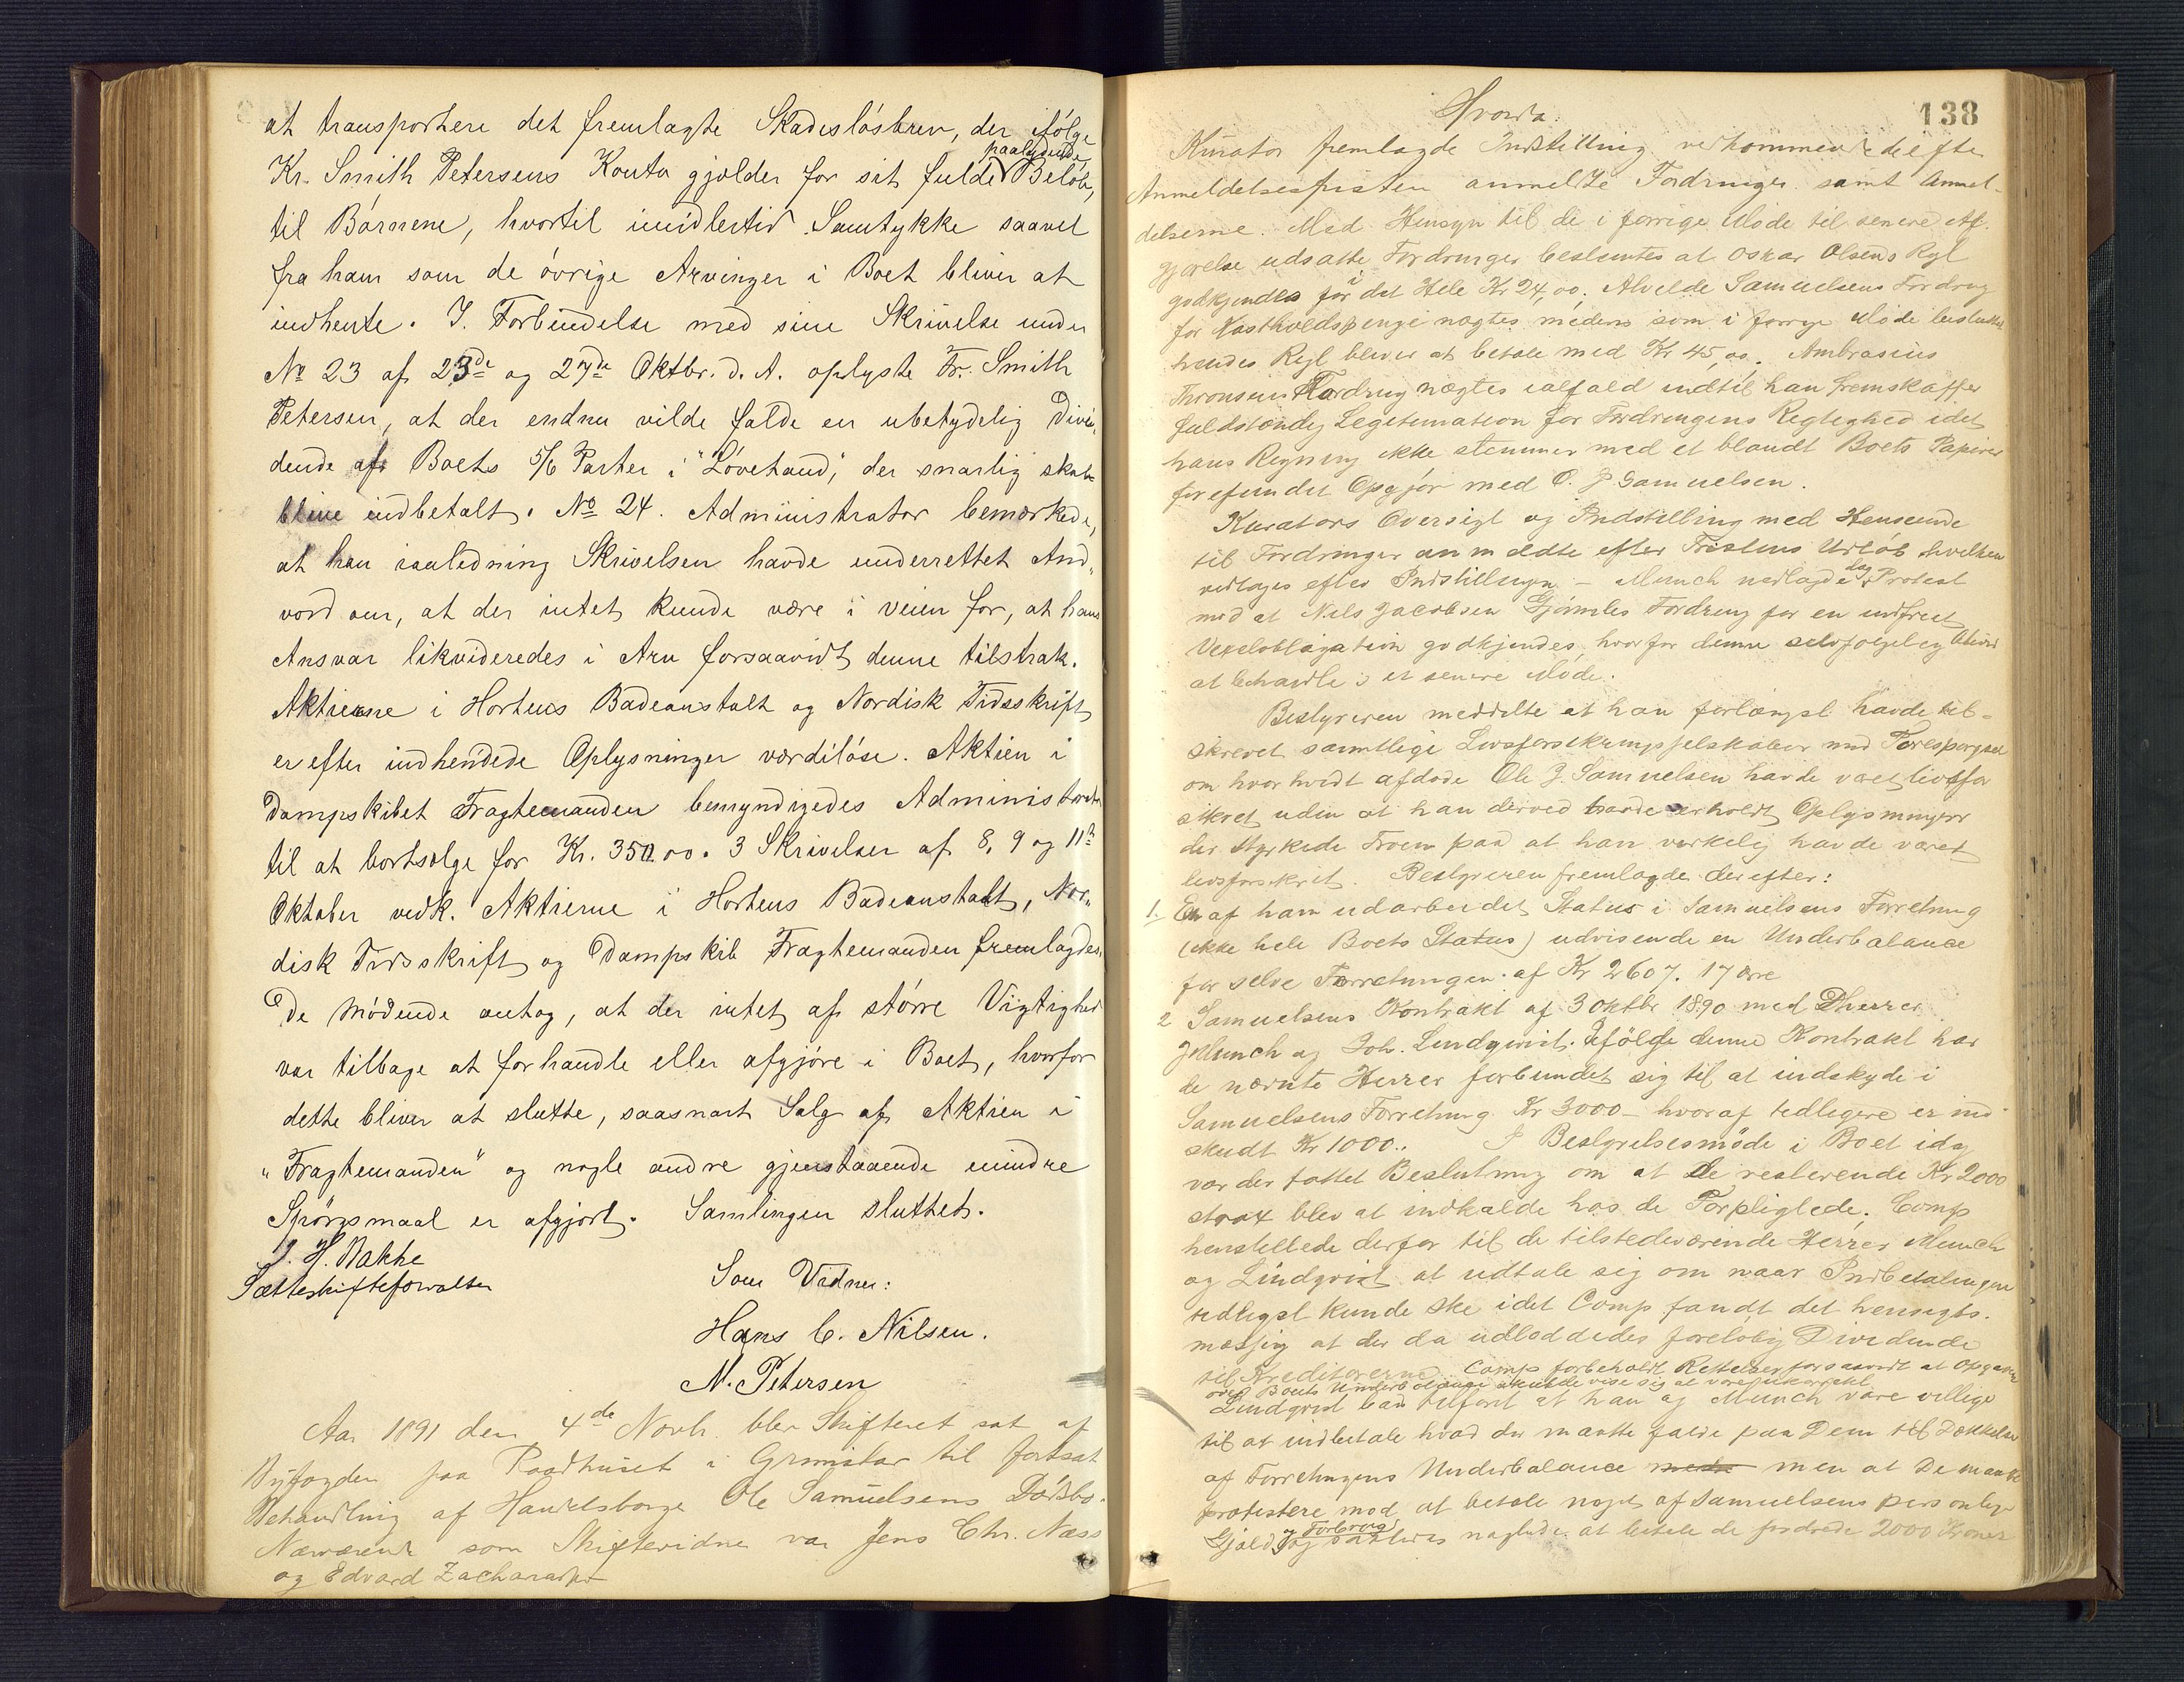 at transportere det fremlagte Skadesløsbrev, der ifølge
Kr. Smith Petersens Konto gjælder for sit fulde paalydende Beløb,
til Børnene, hvortil imidlertid Samtykke saavel
fra ham som de øvrige Arvinger i Boet bliver at
indhente. I Forbindelse med sine Skrivelse under
No 23 af 23de og 27de Oktbr. d. A. oplyste Fr. Smith
Petersen, at der endnu vilde falde en ubetydelig Divi-
dende af Boets 5/6 Parter i "Løvehaud", der snarlig skulde
blive indbetalt. No 24. Administrator bemærkede,
at han i anledning Skrivelsen havde underrettet And-
vord om, at der intet kunde være i veien for, at hans
Ansvar likvideredes i Arv forsaavidt denne tilstrak.
Aktierne i Hortens Badeanstalt og Nordisk Tidsskrift
er efter indhendede Oplysninger værdiløse. Aktien i
Dampskibet Fragtemanden bemyndigedes Administrator
til at bortsælge for Kr. 350.00. 3 Skrivelser af 8, 9 og 11te
Oktober vedk. Aktierne i Hortens Badeanstalt, Nor-
disk Tidsskrift og Dampskib Fragtemanden fremlagdes.
De Mødende antog, at der intet af større Vigtighed
var tilbage at forhandle eller afgjøre i Boet, hvorfor
dette bliver at slutte, saasnart Salg af Aktien i
"Fragtemanden" og nogle andre gjenstaaende mindre
Spørgsmaal er afgjort. Samlingen sluttet.
J. H. Bakke
Sætteskifteforvalter
Som Vidner:
Hans C. Nilsen.
N. Petersen
Aar 1891 den 4de Novb. blev Skifteret sat af
Byfogden paa Raadhuset i Grimstad til fortsat
Behandling af Handelsborger Ole Samuelsens Dødsbo.
Nærværende som Skiftevidner var Jens Chr. Næss
og Edvard Zachariasen
138
Hvorda:
Kurator fremlagde Indstilling vedkommende de efter
Anmeldelsesfristen anmeldte Fordringer samt Anmel-
delserne. Med Hensyn til de i forrige Møde til senere Af-
gjørelse udsatte Fordringer besluttes at Oskar Olsens Rgl
godkjendes for det Hele Kr 24,00; Alvilde Samuelsens Fordring
for Kostholdspenge nægtes medens som i forrige Møde besluttet
hendes Rgl bliver at betale med Kr 45,00. Ambrosius
Thronsens Fordring nægtes ialfald indtil han fremskaffer
fuldstændig Legitimation for Fordringens Rigtighed idet
hans Regning ikke stemmer med et blandt Boets Papirer
forefundet Opgjør med O. J. Samuelsen.
Kurators Oversigt og Indstilling med Henseende
til Fordringer anmeldte efter Fristens Udløb hvilken
vedtoges efter Indstillingen - Munch nedlagde dog Protest
mod at Nils Jacobsen Gjømles Fordring for en indfriet
Vexelobligation godkjendes, hvorfor denne selvfølgelig bliver
at behandle i et senere Møde.
Bestyreren meddelte at han forlængst havde til-
skrevet samtlige Livsforsikringsselskaber med Forespørgsel
om hvorvidt afdøde Ole J. Samuelsen havde været livsfor
sikret uden at han derved havde erholdt Oplysninger
der styrkede Troen paa at han virkelig havde været
livsforsikret. Bestyreren fremlagde derefter:
1. En af ham udarbeidet Status i Samuelsens Forretning
(ikke hele Boets Status) udvisende en Underbalance
for selve Forretningen af Kr 2607. 17 øre
2 Samuelsens Kontrakt af 3 Oktbr 1890 med Dherrer
J Munch og Joh. Lindqvist. Ifølge denne Kontrakt har
de nævnte Herrer forbundet sig til at indskyde i
Samuelsens Forretning Kr 3000 - hvoraf tidligere er ind-
skudt Kr 1000. I Bestyrelsesmøde i Boet idag
var der fattet Beslutning om at de resterende Kr 2000
strax blev at indkalde hos de Forpligtede. Comp
henstillede derfor til de tilstedeværende Herrer Munch
og Lindqvist at udtale sig om naar Indbetalingen
tidligst kunde ske idet Comp fandt det hensigts-
mæssig at der da udloddedes foreløbig Dividende
til Kreditorerne. Comp forbeholdt Rettelser forsaavidt at Opgaven
over Boets Underbalance skulde vise sig at være ukorrekt
Lindqvist bad tilført at han og Munch vare villige
til at indbetale hvad der maatte falde paa Dem til Dækkelse
af Forretningens Underbalance men at De maatte
protestere mod at betale noget af Samuelsens personlige
Gjæld og Forbrug saaledes nægtede at betale de fordrede 2000 Kroner